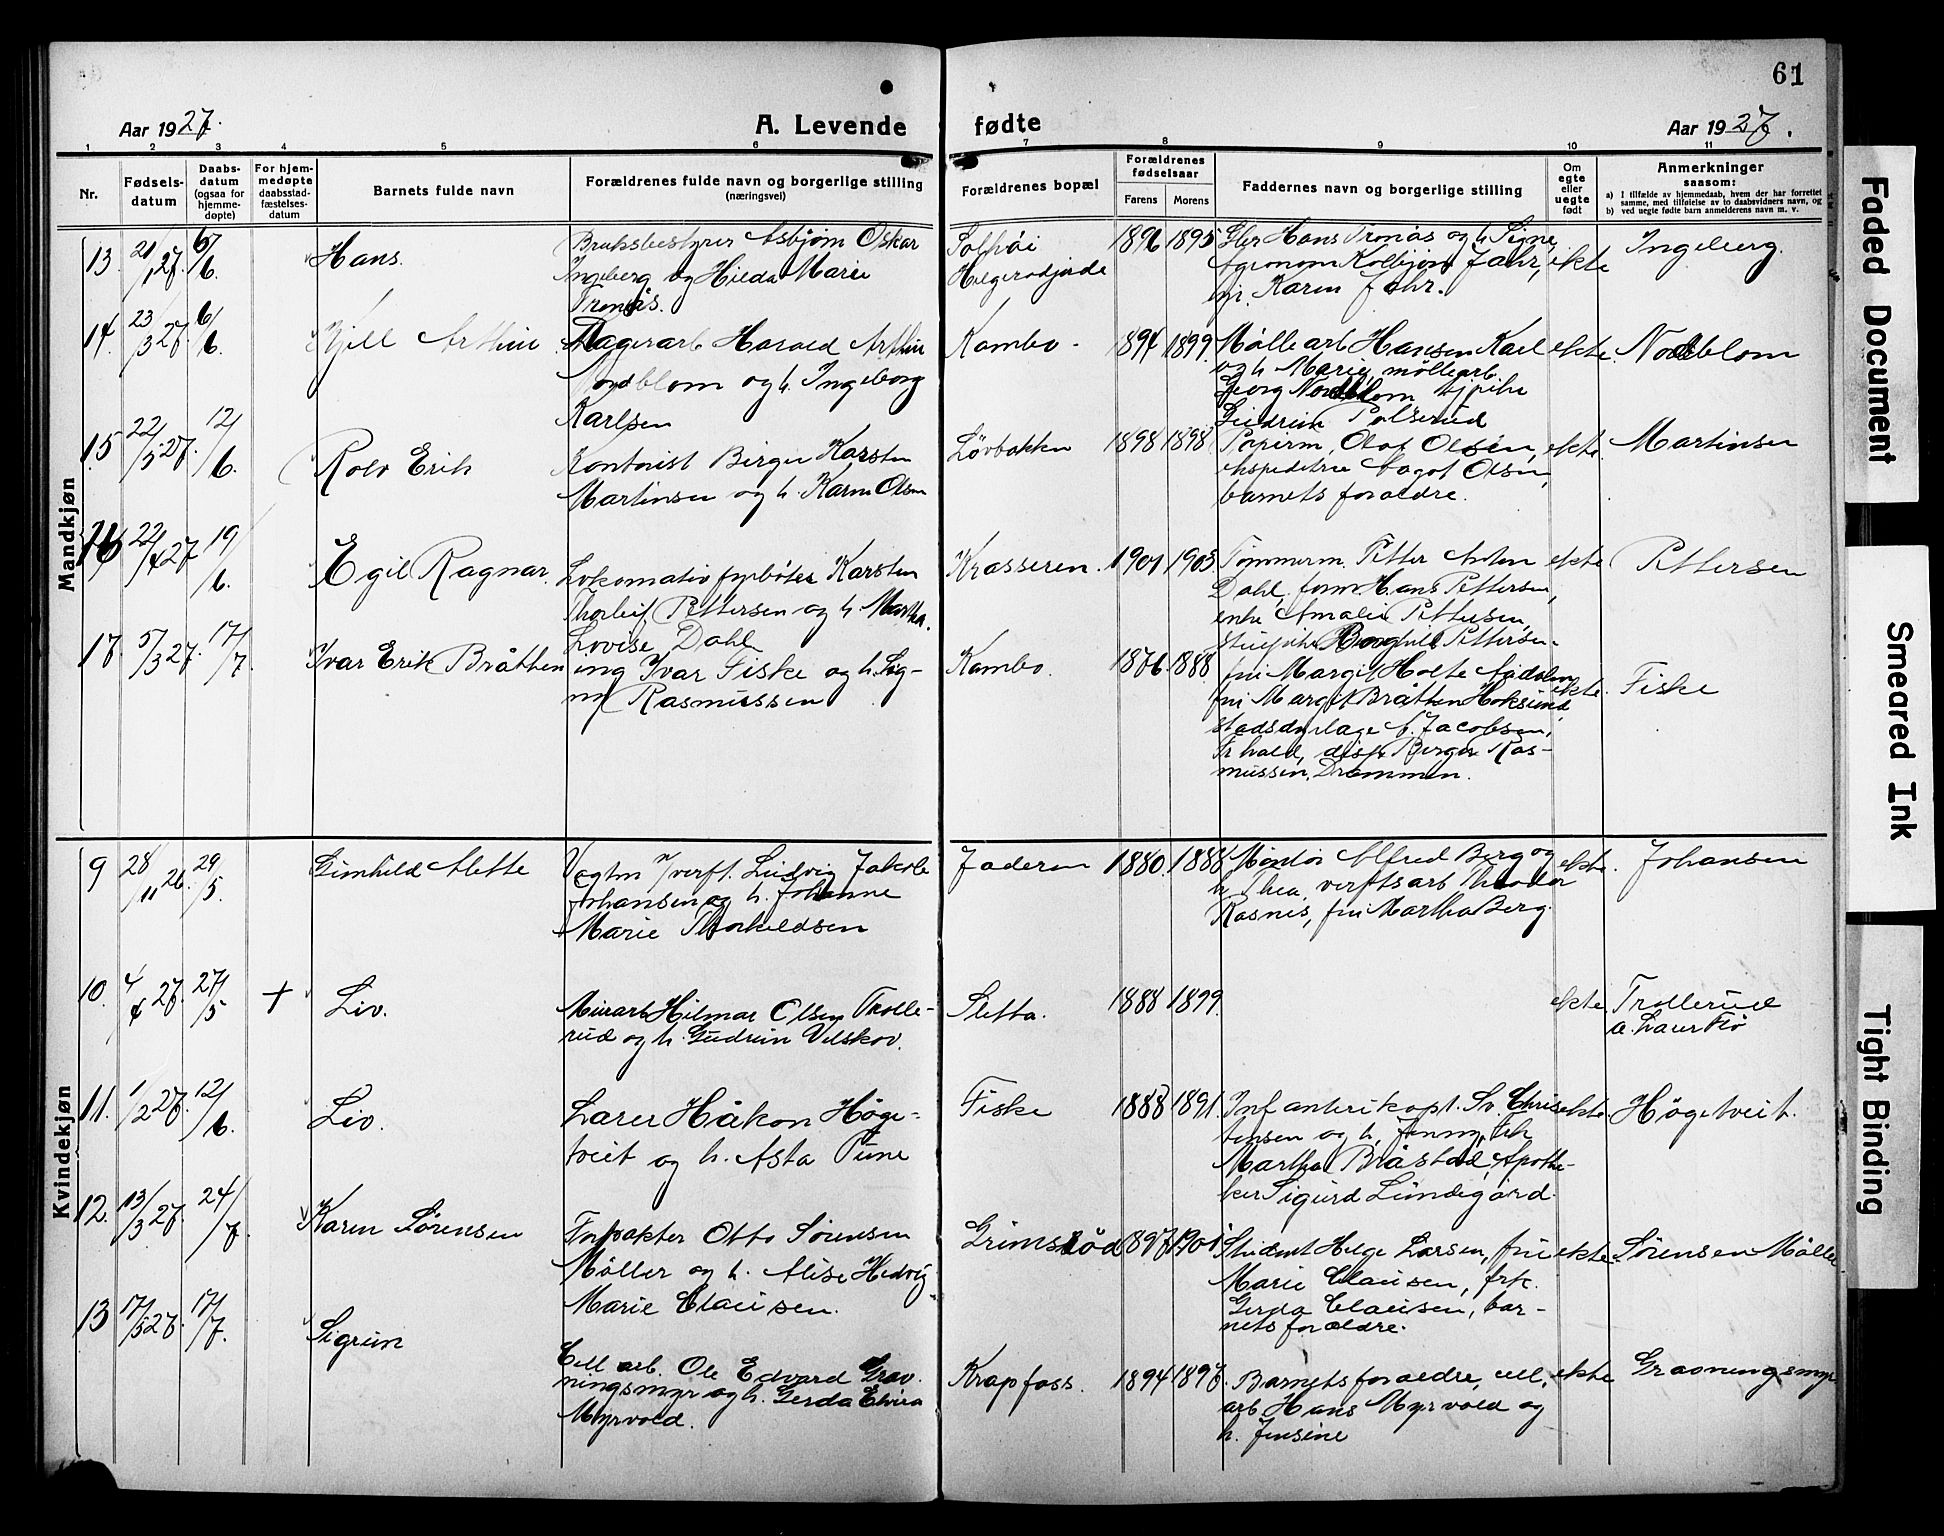 61
Aar 1927.
A. Levende
fødte
Aar 1927.
1 2 3 4 5 6 7 8 9 10 11
Nr.
Fødsels-
datum
Daabs-
datum
(ogsaa for
hjemme-
døpte)
For hjem-
medøpte
daabsstad-
fæstelses-
datum
Barnets fulde navn
Forældrenes fulde navn og borgerlige stilling
(næringsvei)
Forældrenes bopæl
Forældrenes
fødselsaar
Farens
Morens
Faddernes navn og borgerlige stilling
Om
egte
eller
uegte
født
Anmerkninger
saasom:
a) I tilfælde av hjemmedaab, hvem der har forrettet
samme, med tilføielse av to daabsvidners navn, og
b) ved uegte fødte barn anmelderens navn m. v.
Mandkjøn
13. 21/1 27. 6/6. Hans.
Bruksbestyrer Asbjørn Oskar
Ingeberg og Hilda Marie
Tronås.
Solhøi
1896 1895
Gbr Hans Tronås og h. Signe,
Agronom Kolbjørn Jahr,
Karen Jahr.
ekte
Ingeberg.
14. 23/3 27. 6/6. Kjell Arthur
Lagerarb Harald Arthur
Nordblom og h. Ingeborg
Karlsen
Kambo.
1894 1899.
Møllearb Hansen Karl
og h Marie, møllearb.
Georg Nordblom
Gudrun
ekte.
Nordblom
15. 22/5 27. 12/6. Rolv Erik
Kontorist Birger Karsten
Martinsen og h. Karen Olsen
Løvbakken
1898 1898
Papirm, Olaf Olsen,
ekspeditrice Aagot Olsen,
barnets foraeldre.
ekte.
Martinsen
16 22/4 27 19/6. Egil Ragnar
Lokomotivfyrbøter Karsten
Thorleif Pettersen og h. Martha
Lovise Dahl
Krosseren.
1901 1903
Tømmerm. Petter Anton
Dahl, form. Hans Pettersen,
enke Amalie Pettersen,
Borghild Pettersen.
ekte
Pettersen
17. 5/3 27. 17/7. Ivar Erik Bråthen
ing Ivar Fiske og h. Sig-
ny Rasmussen
Kambo.
1876. 1888.
fru Margit Holte
fru Margit Bråthen Hoksund,
stadsdyrlæge A. Jacobsen,
Fr.hald, disp. Birger Ras-
mussen, Drammen.
ekte.
Fiske
Kvindekjøn
9 28/11 26. 29/5. Gunhild Alette
Vegtm v/verft. Ludvig Jakob
Johansen og h. Johanne
Marie Thorkildsen
Jaderen
1880. 1888
Montør Alfred Berg og
h Thea, verftsarb Theodor
Rasnes, fru Martha Berg.
ekte.
Johansen
10. 4/4 27. 27/5 + Liv.
Murarb Hilmar Olsen Trolle-
rud og h. Gudrun Velskov.
Sletta.
1888 1899.
ekte.
Trollerud
a. Laur Fio
11. 1/2 27. 12/6. Liv.
Lærer Håkon Høge-
tveit og h. Asta Tune
Fiske
1888 1891.
Infanterikapt. Sv. Chris
tensen og h. Jenny, frk
Martha Bråstad, Apothe-
ker Sigurd Lundegård.
ekte.
Høgetveit.
12. 13/3 27. 24/7. Karen Sørensen
Forpakter Otto Sørensen
Møller og h. Alise Hedvig
Marie Clausen.
Grimsrød
1897 1901
Student Helge Larsen, fru
Marie Clausen, frk.
Gerda Clausen, bar-
nets foraeldre.
ekte.
Sørensen Møller
13 17/5 27. 17/7. Sigrun
Cell arb. Ole Edvard Grav
ningsmyr og h. Gerda Elvira
Myrvold.
Krapfoss.
1894 1897.
Barnets foraeldre, cell.
arb Hans Myrvold og
h. Jensine
ekte
Gravningsmyr
Faded Document
Smeared Ink
Tight Binding